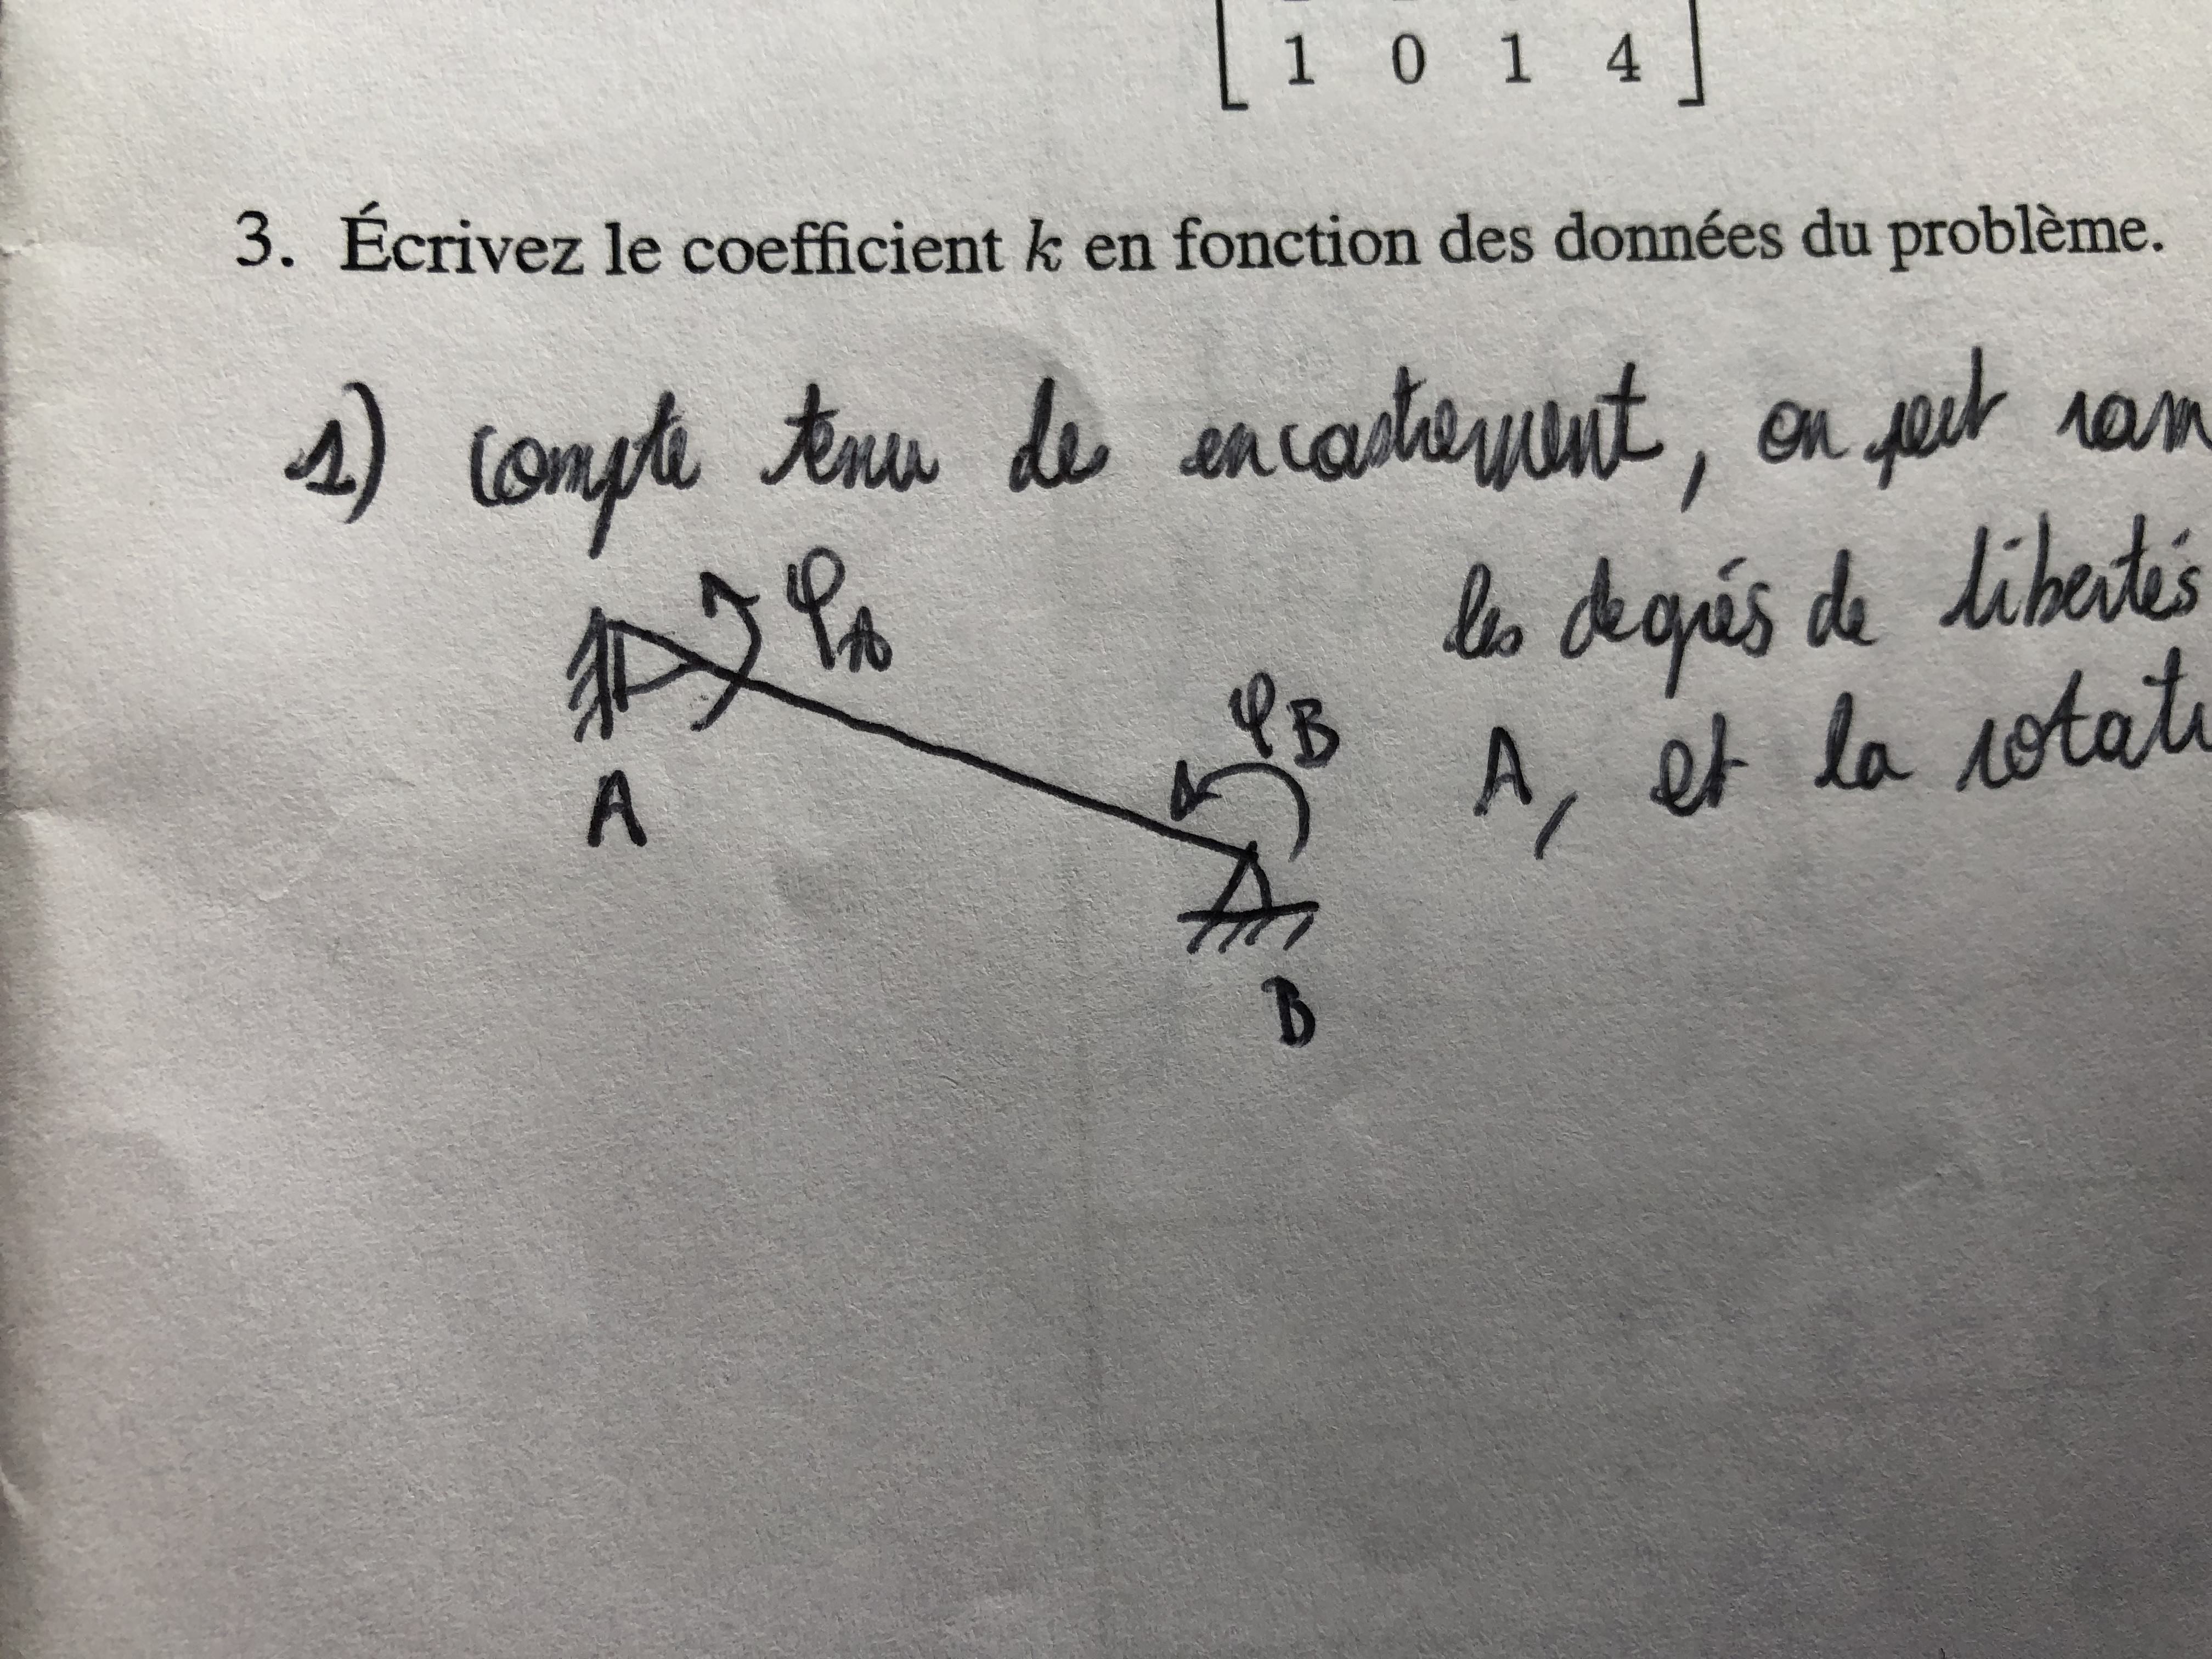 1 0 1 4
3. Écrivez le coefficient k en fonction des données du problème.
1) Compte tenu de encastrement, on peut ram
les degrés de libertés
φA
φB
A, et la rotati
A
B